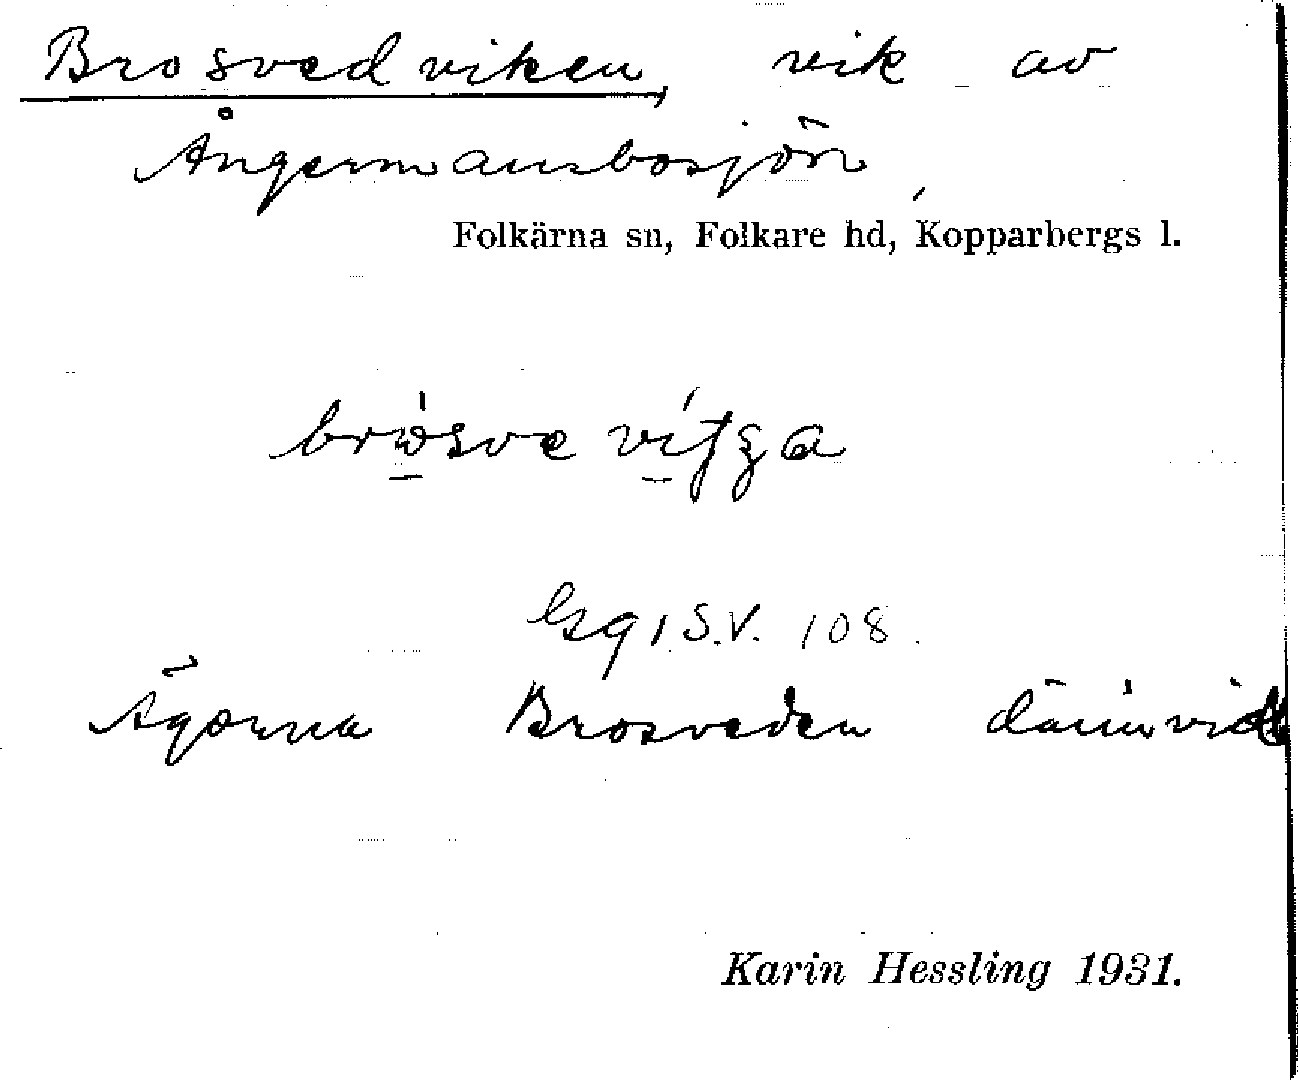 Brosvedviken, vik av
Ångermansbosjön,
Folkärna sn, Folkare hd, Kopparbergs l.
S.V. 108.
Ägorna Brosveden därinvid
Karin Hessling 1931.